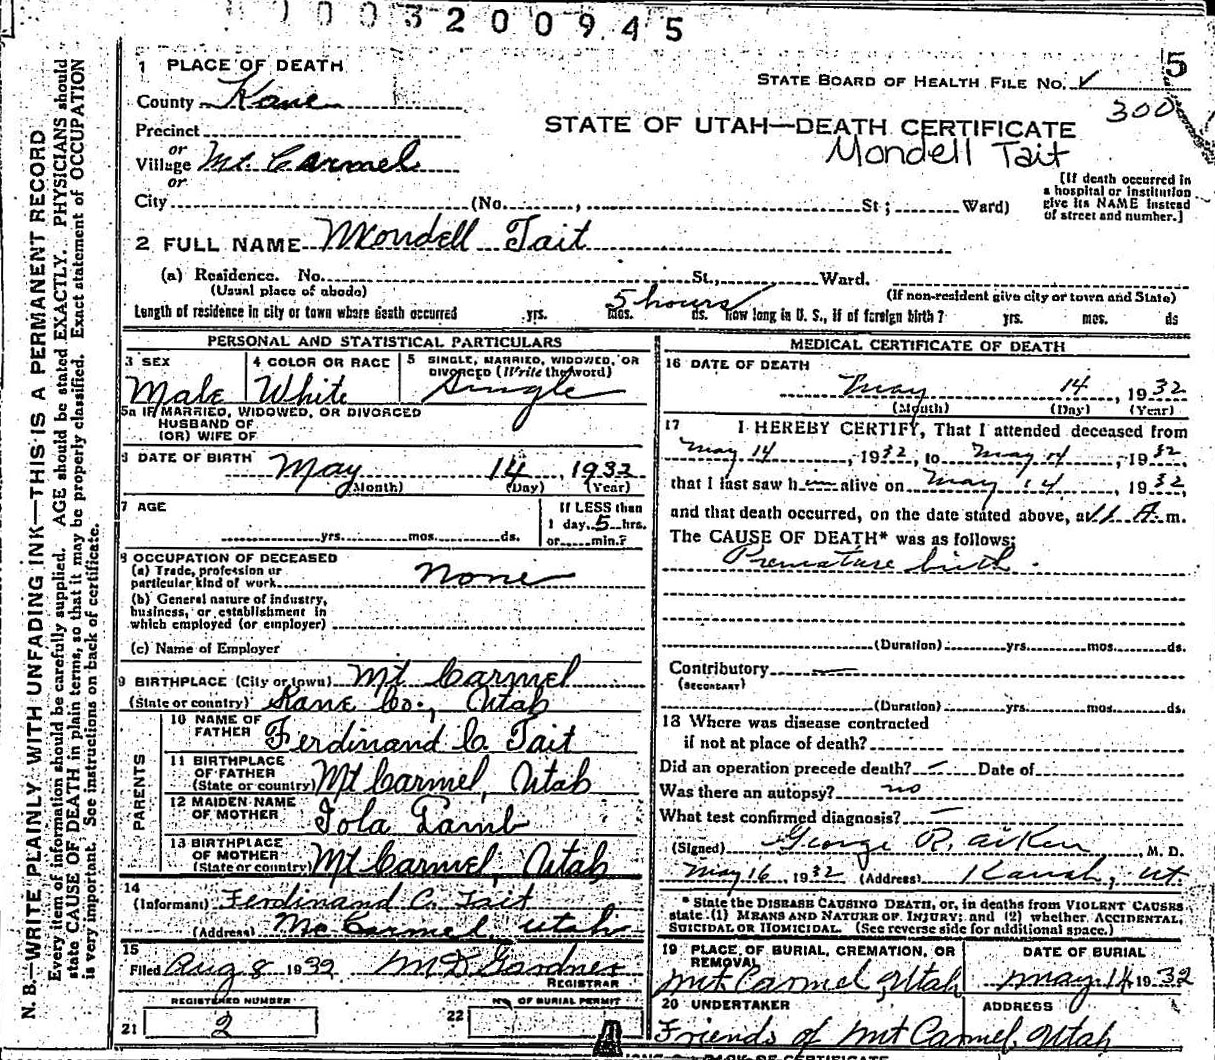 1003200945
5
1 PLACE OF DEATH
County Kane
STATE BOARD OF HEALTH FILE NO. ✓
300
Precinct
or
STATE OF UTAH—DEATH CERTIFICATE
Mondell Tait
Village Mt. Carmel
or
City (No. , St; Ward)
[If death occurred in
a hospital or institution
give its NAME instead
of street and number.]
2 FULL NAME Mondell Tait
(a) Residence. No. St., Ward.
(Usual place of abode)
(If non-resident give city or town and State)
5 hours
Length of residence in city or town where death occurred yrs. mos. ds. How long in U. S., if of foreign birth? yrs. mos. ds
PERSONAL AND STATISTICAL PARTICULARS
3 SEX
Male
4 COLOR OR RACE
White
5 SINGLE, MARRIED, WIDOWED, OR
DIVORCED (Write the word)
Single
5a IF MARRIED, WIDOWED, OR DIVORCED
HUSBAND OF
(OR) WIFE OF
6 DATE OF BIRTH May 14, 1932
(Month) (Day) (Year)
7 AGE
yrs. mos. ds.
If LESS than
1 day, 5 hrs.
or min.?
8 OCCUPATION OF DECEASED
(a) Trade, profession or
particular kind of work none
(b) General nature of industry,
business, or establishment in
which employed (or employer)
(c) Name of Employer
9 BIRTHPLACE (City or town) Mt Carmel
(State or country) Kane Co., Utah
PARENTS
10 NAME OF
FATHER Ferdinand C. Tait
11 BIRTHPLACE
OF FATHER
(State or country) Mt Carmel, Utah
12 MAIDEN NAME
OF MOTHER Iola Lamb
13 BIRTHPLACE
OF MOTHER
(State or country) Mt Carmel, Utah
14
(Informant) Ferdinand C. Tait
(Address) Mt Carmel, Utah
15
Filed Aug 8 1932 M D Gardner
REGISTRAR
REGISTERED NUMBER
21 2
NO. OF BURIAL PERMIT
22
MEDICAL CERTIFICATE OF DEATH
16 DATE OF DEATH
May 14, 1932
(Month) (Day) (Year)
17 I HEREBY CERTIFY, That I attended deceased from
May 14, 1932, to May 14, 1932,
that I last saw him alive on May 14, 1932,
and that death occurred, on the date stated above, at 11 A. m.
The CAUSE OF DEATH* was as follows:
Premature birth.
(Duration) yrs. mos. ds.
Contributory —
(SECONDARY)
(Duration) yrs. mos. ds.
18 Where was disease contracted
if not at place of death?
Did an operation precede death? — Date of
Was there an autopsy? no
What test confirmed diagnosis? —
(Signed) George R. Aiken, M. D.
May 16, 1932 (Address) Kanab, Ut.
* State the DISEASE CAUSING DEATH, or, in deaths from VIOLENT CAUSES
state (1) MEANS AND NATURE OF INJURY; and (2) whether ACCIDENTAL,
SUICIDAL OR HOMICIDAL. (See reverse side for additional space.)
19 PLACE OF BURIAL, CREMATION, OR
REMOVAL
Mt Carmel, Utah
DATE OF BURIAL
May 14 1932
20 UNDERTAKER ADDRESS
Friends of Mt Carmel, Utah
N. B.—WRITE PLAINLY, WITH UNFADING INK—THIS IS A PERMANENT RECORD
Every item of information should be carefully supplied. AGE should be stated EXACTLY. PHYSICIANS should
state CAUSE OF DEATH in plain terms, so that it may be properly classified. Exact statement of OCCUPATION
is very important. See instructions on back of certificate.